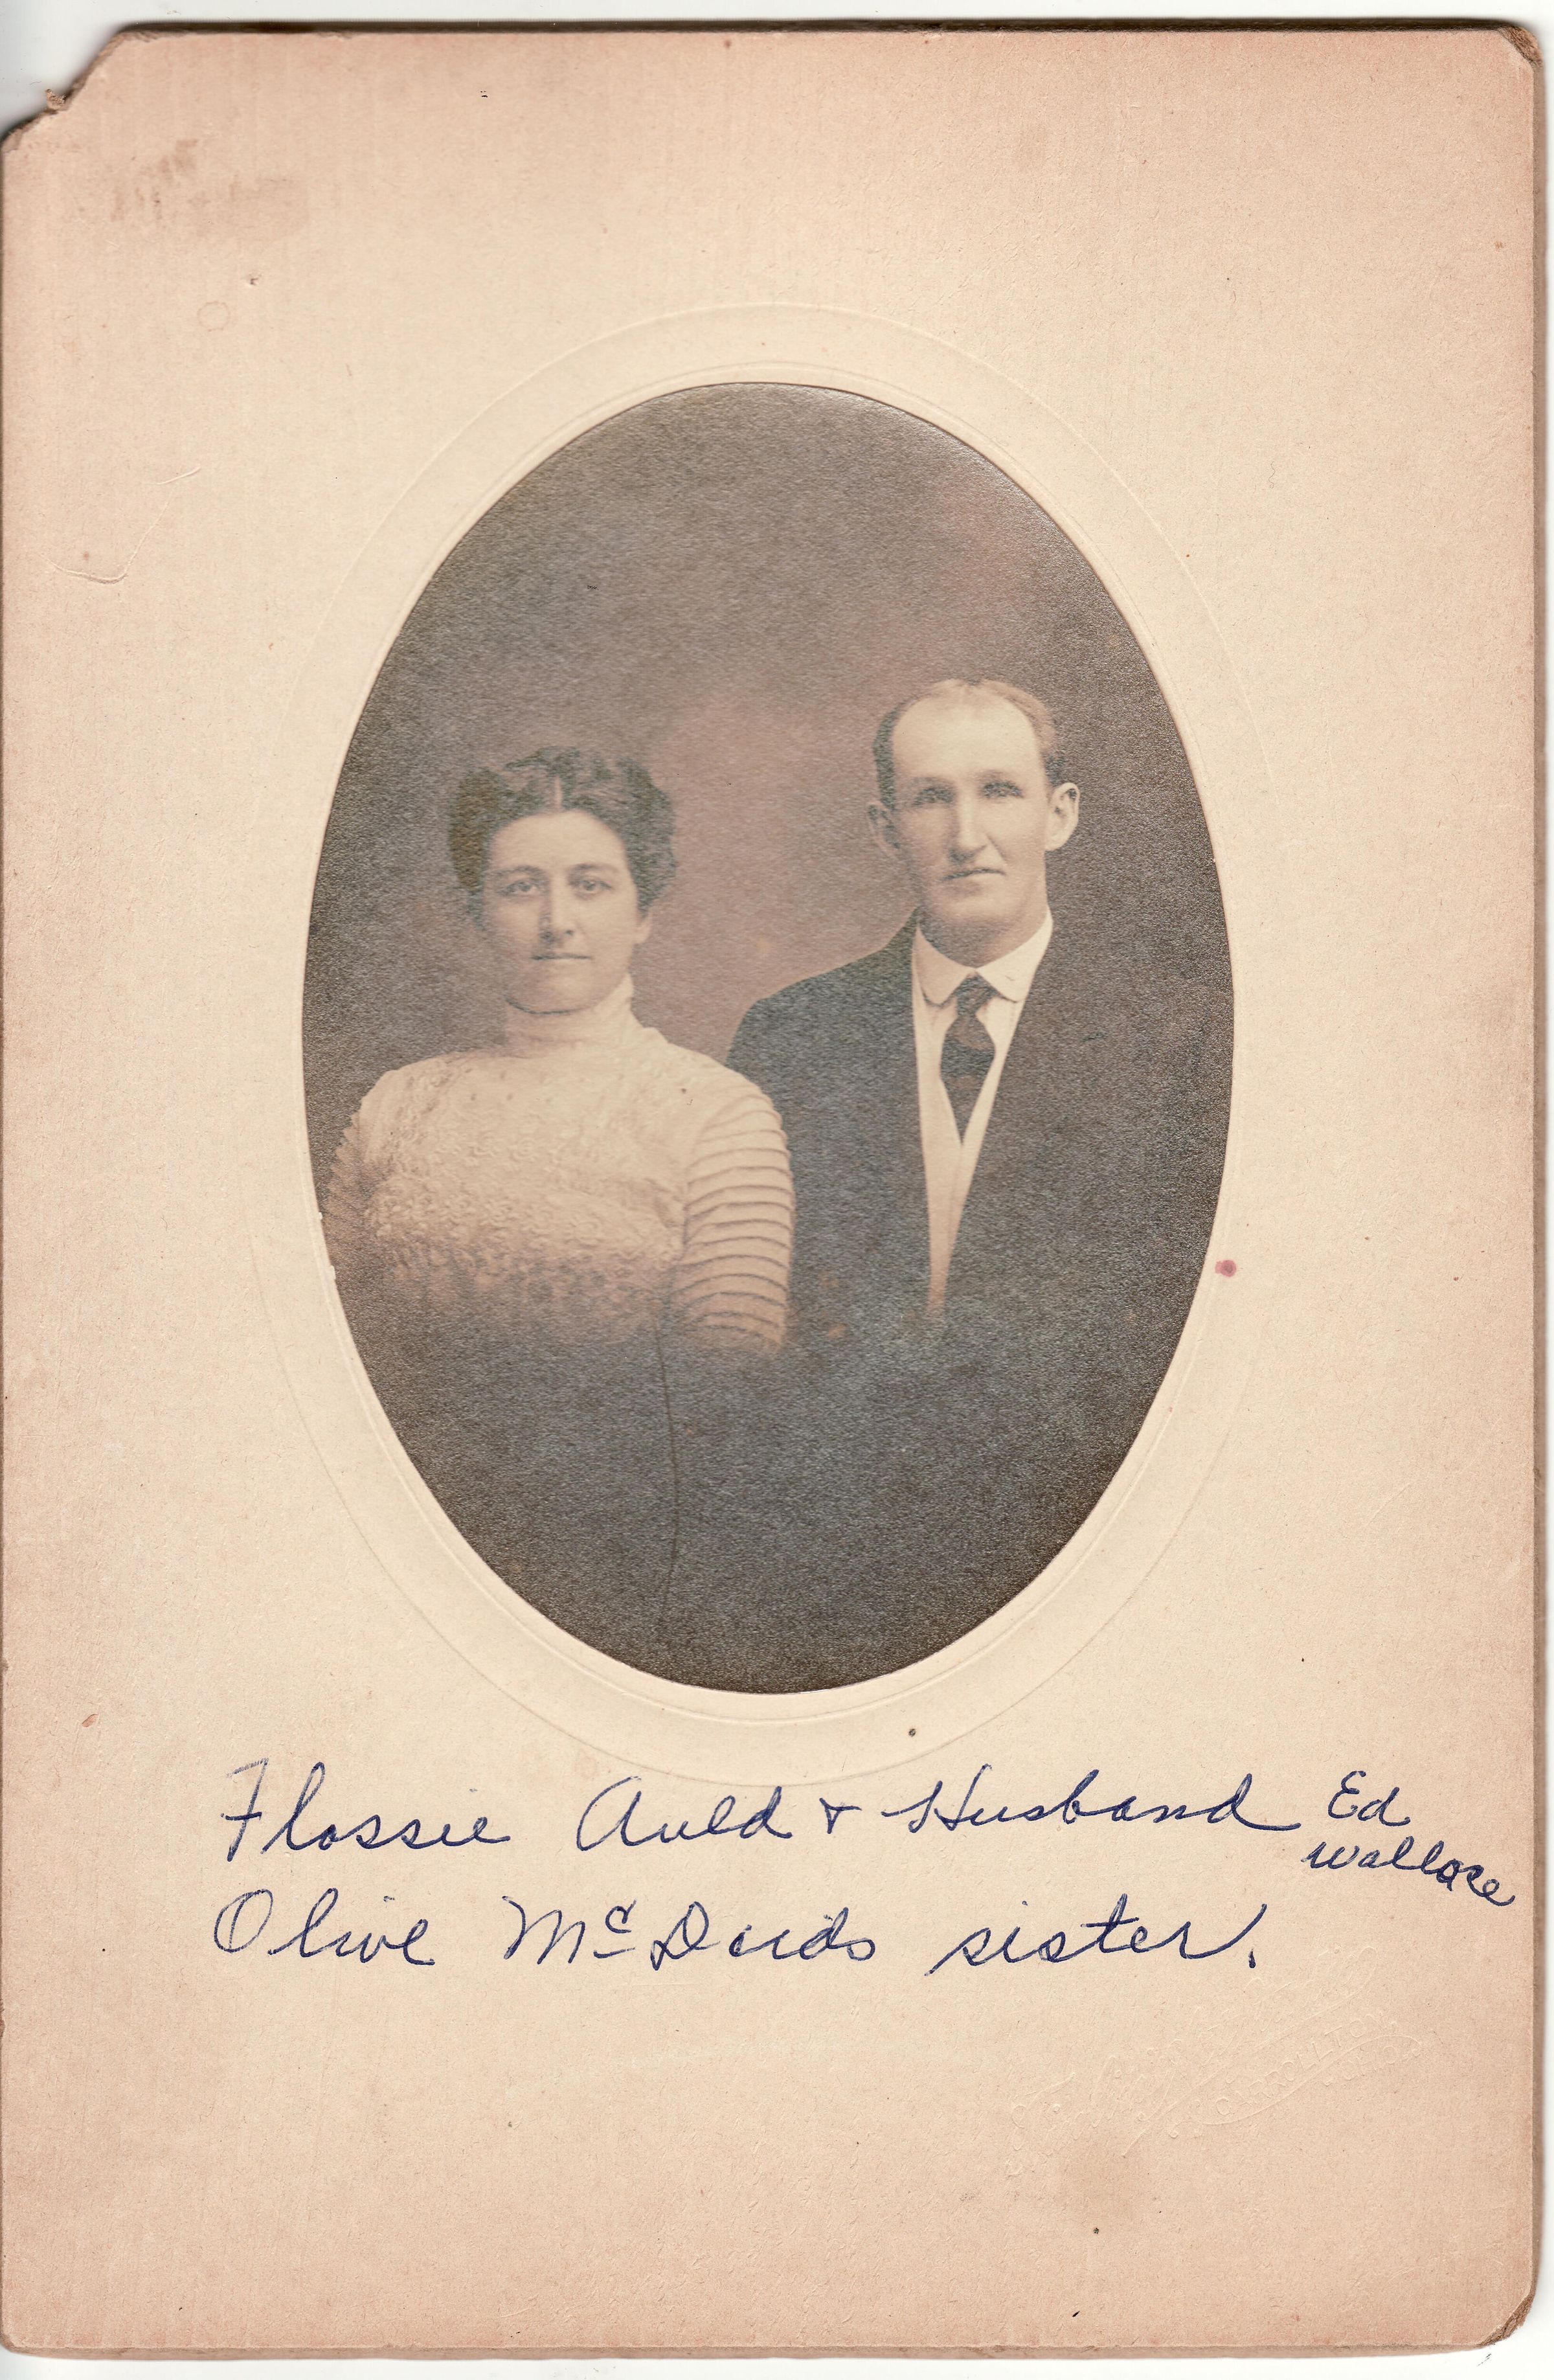 Flossie Auld & Husband Ed
Wallace
Olive McDavids sister.
CARROLLTON,
OHIO.